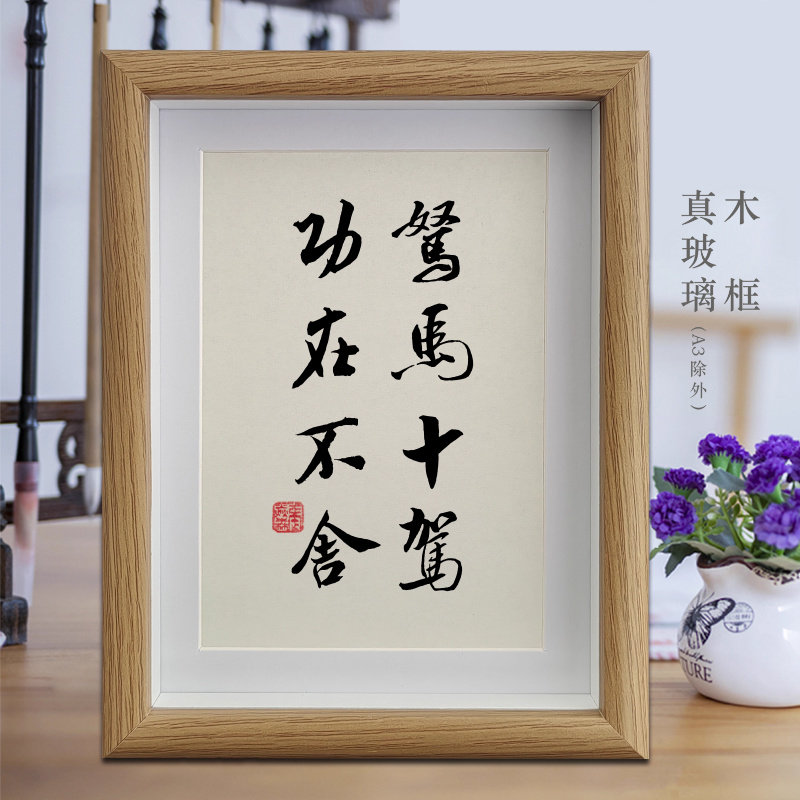 驽馬十駕
功在不舍
木框
真玻璃(A3除外)
TURE